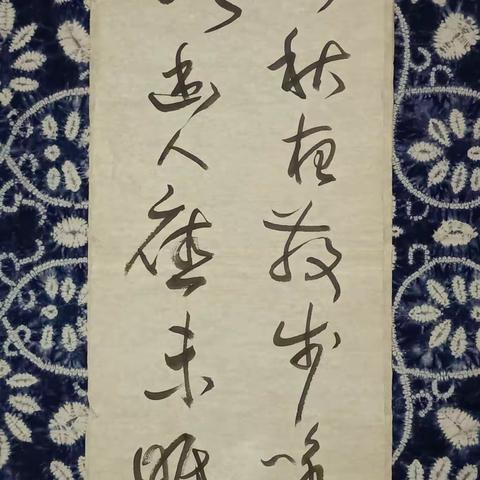 秋夜散步咏
幽人應未眠